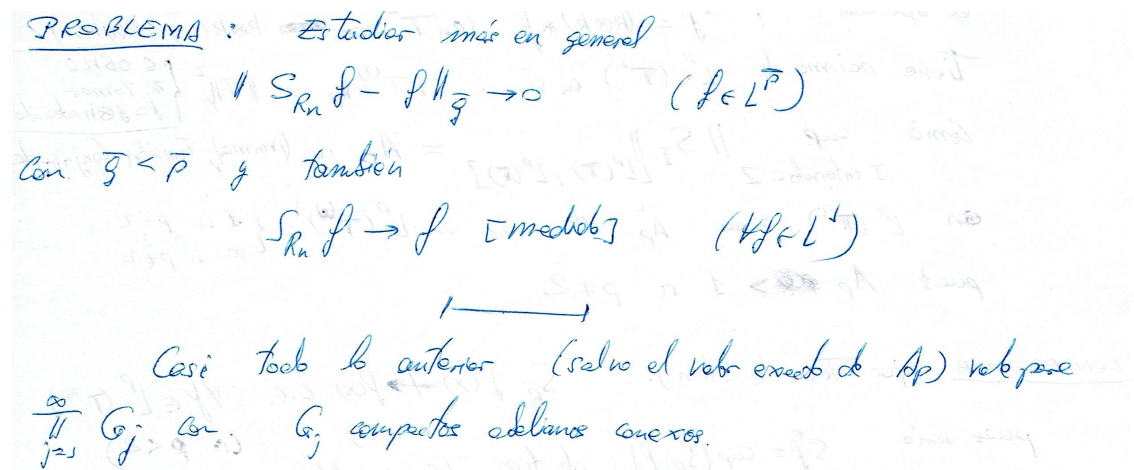 PROBLEMA : Estudiar más en general
‖ S_{R_n} f − f ‖_{\bar{q}} → 0 (f ∈ L^{\bar{p}})
con \bar{q} < \bar{p} y también
S_{R_n} f → f [medida] (∀f ∈ L^1)
Casi todo lo anterior (salvo el valor exacto de A_p) vale para
∏_{j=1}^{∞} G_j con G_j compactos abelianos conexos.